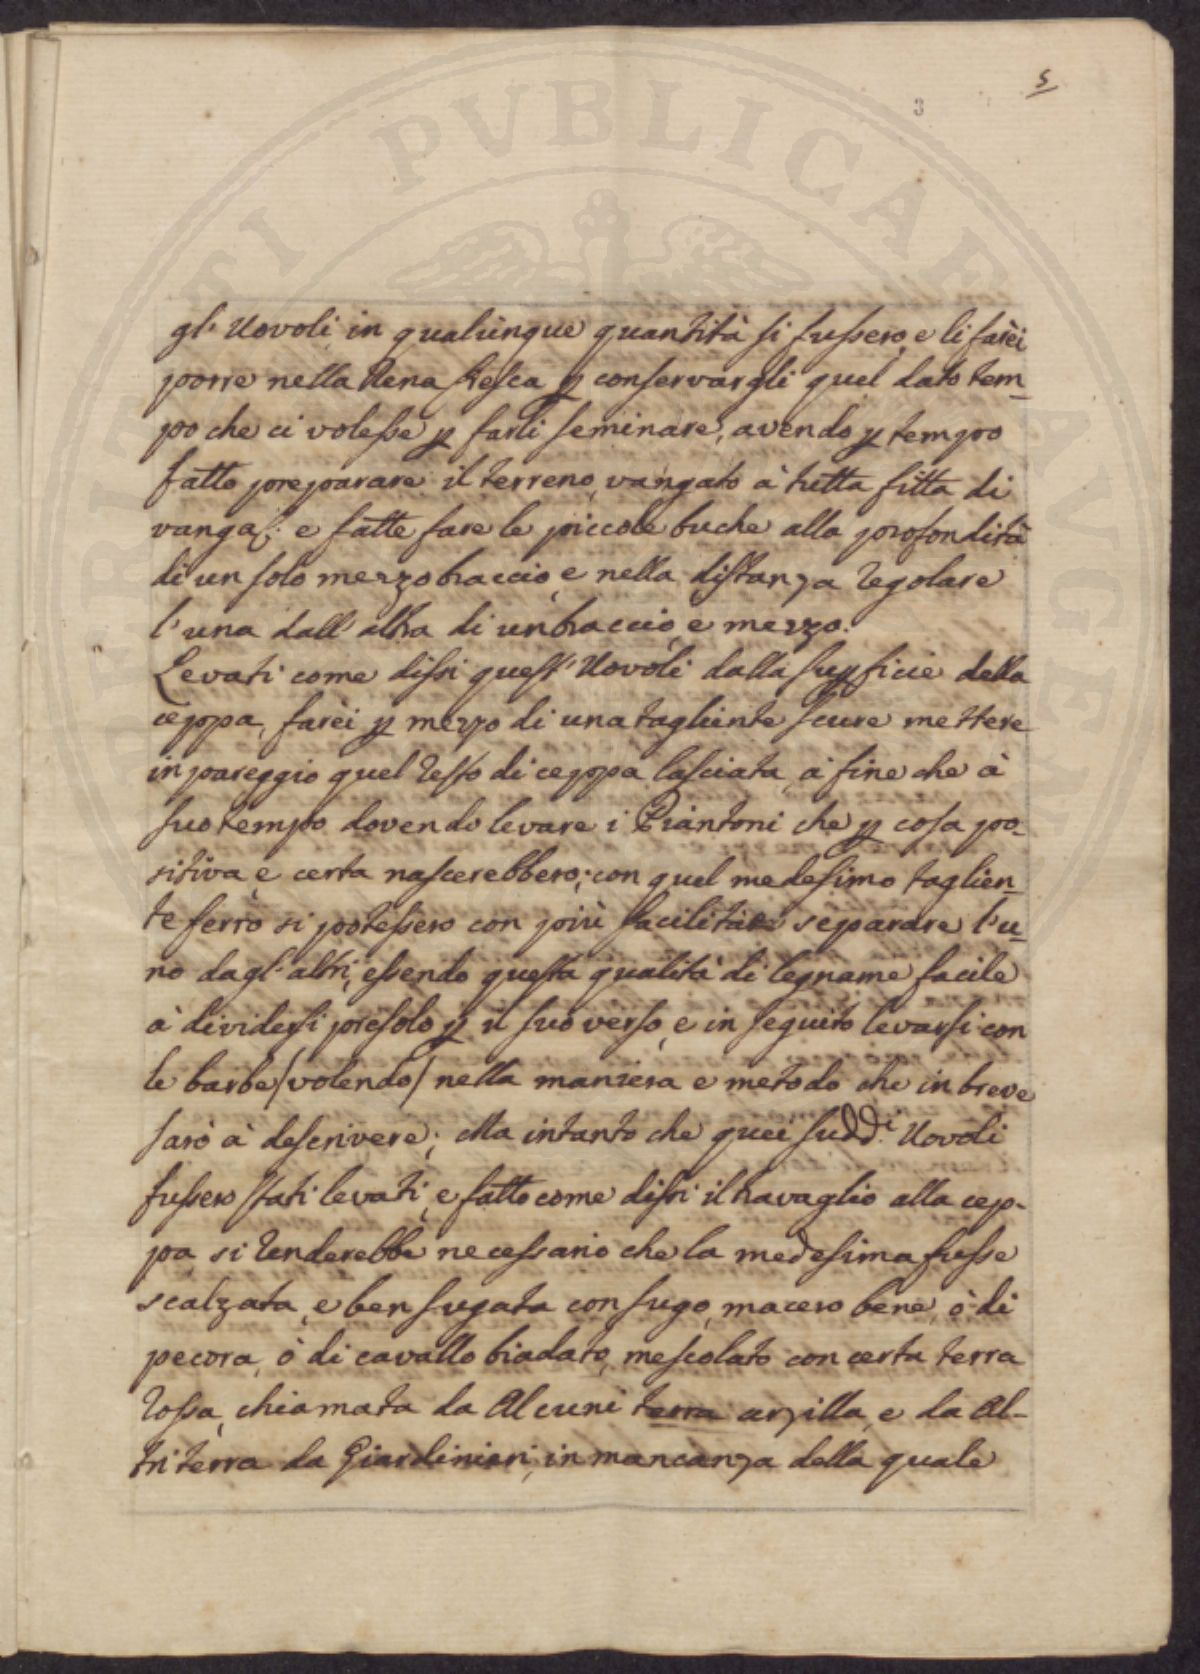 5
3
gl' Uovoli in qualunque quantità si fussero, e li farèi
porre nella Rena fresca p conservargli quel dato tem-
po che ci volesse p farli seminare, avendo p tempo
fatto preparare il terreno, vangato à tutta fitta di
vanga; e fatte fare le piccole buche alla profondità
di un solo mezzo braccio, e nella distanza regolare
l'una dall'altra di un braccio, e mezzo.
Levati come dissi quest' Uovoli dalla supficie della
ceppa, farèi p mezzo di una tagliente scure mettere
in pareggio quel resto di ceppa lasciata, à fine che à
suo tempo dovendo levare i Piantoni che p cosa po-
sitiva, e certa nascerebbero; con quel medesimo taglien-
te ferro si potessero con più facilità separare l'u-
no dagl'altri, essendo questa qualità di legname facile
à dividersi presolo p il suo verso, e in seguito levarsi con
le barbe (volendo) nella maniera e metodo che in breve
sarò à descrivere; Ma intanto che quei sudd.i Uovoli
fussero stati levati, e fatto come dissi il travaglio alla cep-
pa si renderebbe necessario che la medesima fusse
scalzata, e ben sugata con sugo, macero bene, ò di
pecora, ò di cavallo biadato, mescolato con certa terra
rossa, chiamata da Alcuni terra arzilla, e da Al-
tri terra da Giardinieri, in mancanza della quale
PVBLICAE
AVG